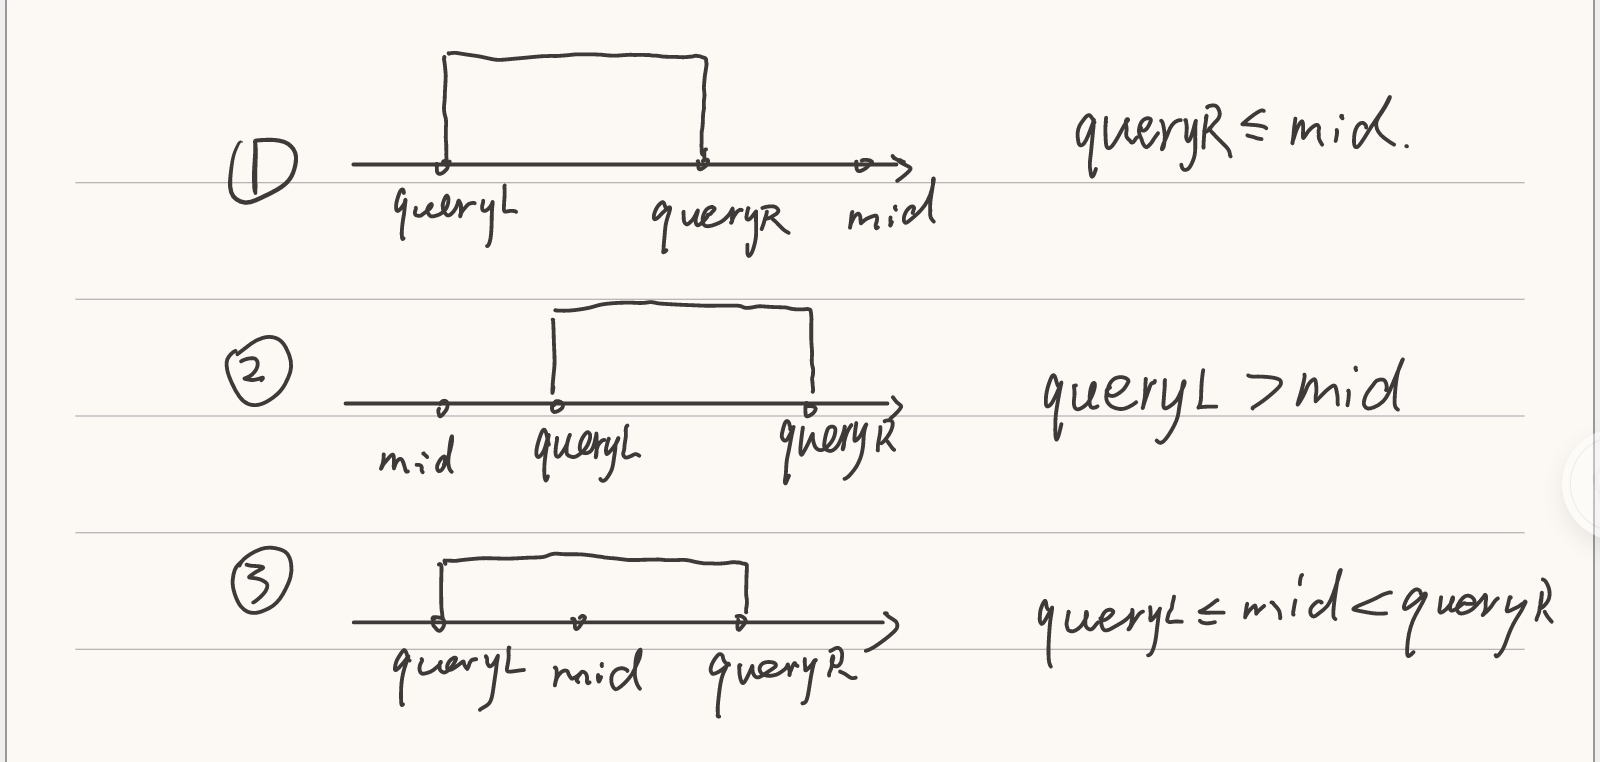 ① queryL queryR mid queryR ≤ mid.
② mid queryL queryR queryL > mid
③ queryL mid queryR queryL ≤ mid < queryR